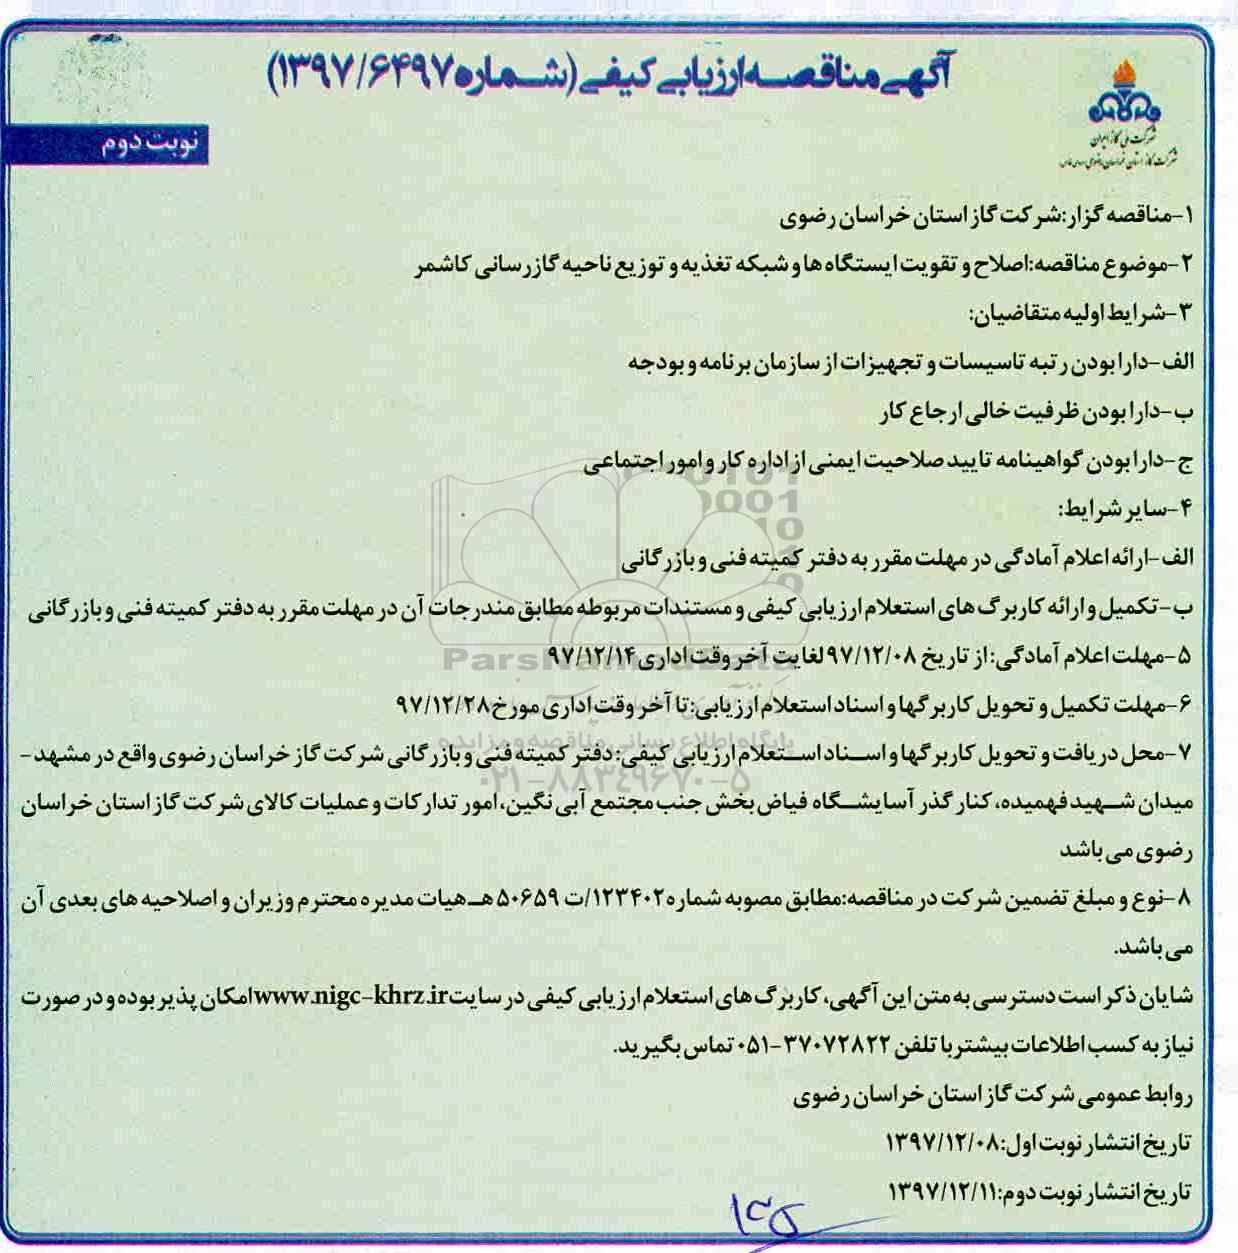 آگهی مناقصه ارزیابی کیفی (شماره ۱۳۹۷/۶۴۹۷)
شرکت ملی گاز ایران
شرکت گاز استان خراسان رضوی
نوبت دوم
۱-مناقصه گزار:شرکت گاز استان خراسان رضوی
۲-موضوع مناقصه:اصلاح و تقویت ایستگاه ها و شبکه تغذیه و توزیع ناحیه گازرسانی کاشمر
۳-شرایط اولیه متقاضیان:
الف-دارا بودن رتبه تاسیسات و تجهیزات از سازمان برنامه و بودجه
ب-دارا بودن ظرفیت خالی ارجاع کار
ج-دارا بودن گواهینامه تایید صلاحیت ایمنی از اداره کار و امور اجتماعی
۴-سایر شرایط:
الف-ارائه اعلام آمادگی در مهلت مقرر به دفتر کمیته فنی و بازرگانی
ب-تکمیل و ارائه کاربرگ های استعلام ارزیابی کیفی و مستندات مربوطه مطابق مندرجات آن در مهلت مقرر به دفتر کمیته فنی و بازرگانی
۵-مهلت اعلام آمادگی: از تاریخ ۹۷/۱۲/۰۸ لغایت آخر وقت اداری ۹۷/۱۲/۱۴
ParsNamad Data
۶-مهلت تکمیل و تحویل کاربرگها و اسناد استعلام ارزیابی: تا آخر وقت اداری مورخ ۹۷/۱۲/۲۸
پایگاه اطلاع رسانی مناقصه و مزایده
۷-محل دریافت و تحویل کاربرگها و اسناد استعلام ارزیابی کیفی: دفتر کمیته فنی و بازرگانی شرکت گاز خراسان رضوی واقع در مشهد-
۰۲۱-۸۸۳۴۹۶۷۰-۵
میدان شهید فهمیده، کنار گذر آسایشگاه فیاض بخش جنب مجتمع آبی نگین، امور تدارکات و عملیات کالای شرکت گاز استان خراسان
رضوی می باشد
۸-نوع و مبلغ تضمین شرکت در مناقصه:مطابق مصوبه شماره ۱۲۳۴۰۲/ت ۵۰۶۵۹ هـ هیات مدیره محترم وزیران و اصلاحیه های بعدی آن
می باشد.
شایان ذکر است دسترسی به متن این آگهی، کاربرگ های استعلام ارزیابی کیفی در سایت www.nigc-khrz.ir امکان پذیر بوده و در صورت
نیاز به کسب اطلاعات بیشتر با تلفن ۳۷۰۷۲۸۲۲-۰۵۱ تماس بگیرید.
روابط عمومی شرکت گاز استان خراسان رضوی
تاریخ انتشار نوبت اول:۱۳۹۷/۱۲/۰۸
تاریخ انتشار نوبت دوم:۱۳۹۷/۱۲/۱۱